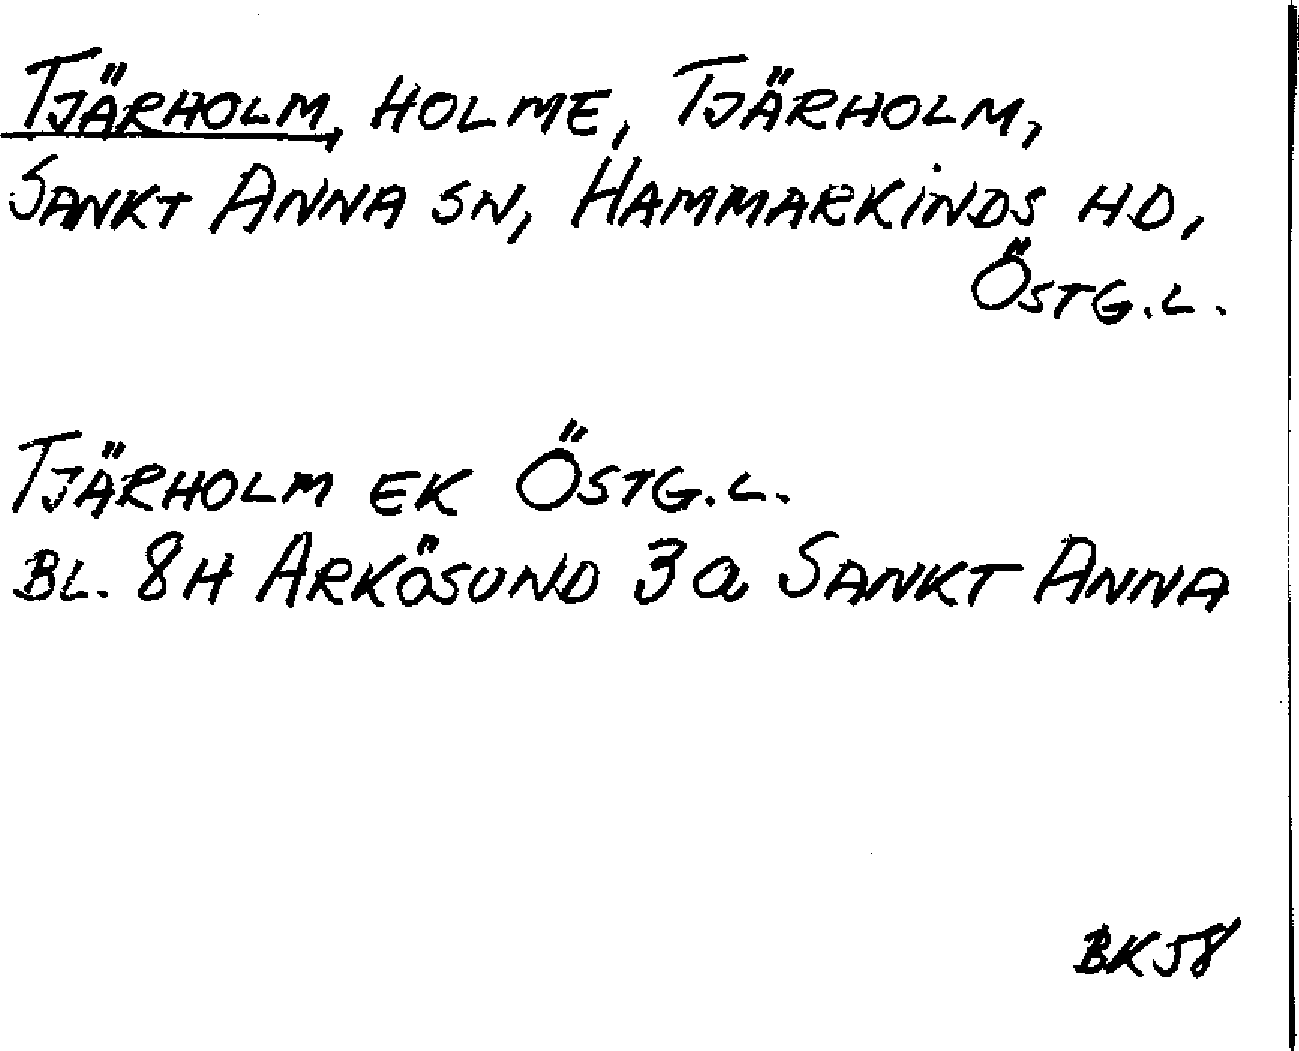 TJÄRHOLM, HOLME, TJÄRHOLM,
SANKT ANNA SN, HAMMARKINDS HD,
ÖSTG.L.
TJÄRHOLM EK ÖSTG.L.
BL. 8H ARKÖSUND 3a SANKT ANNA
BK58